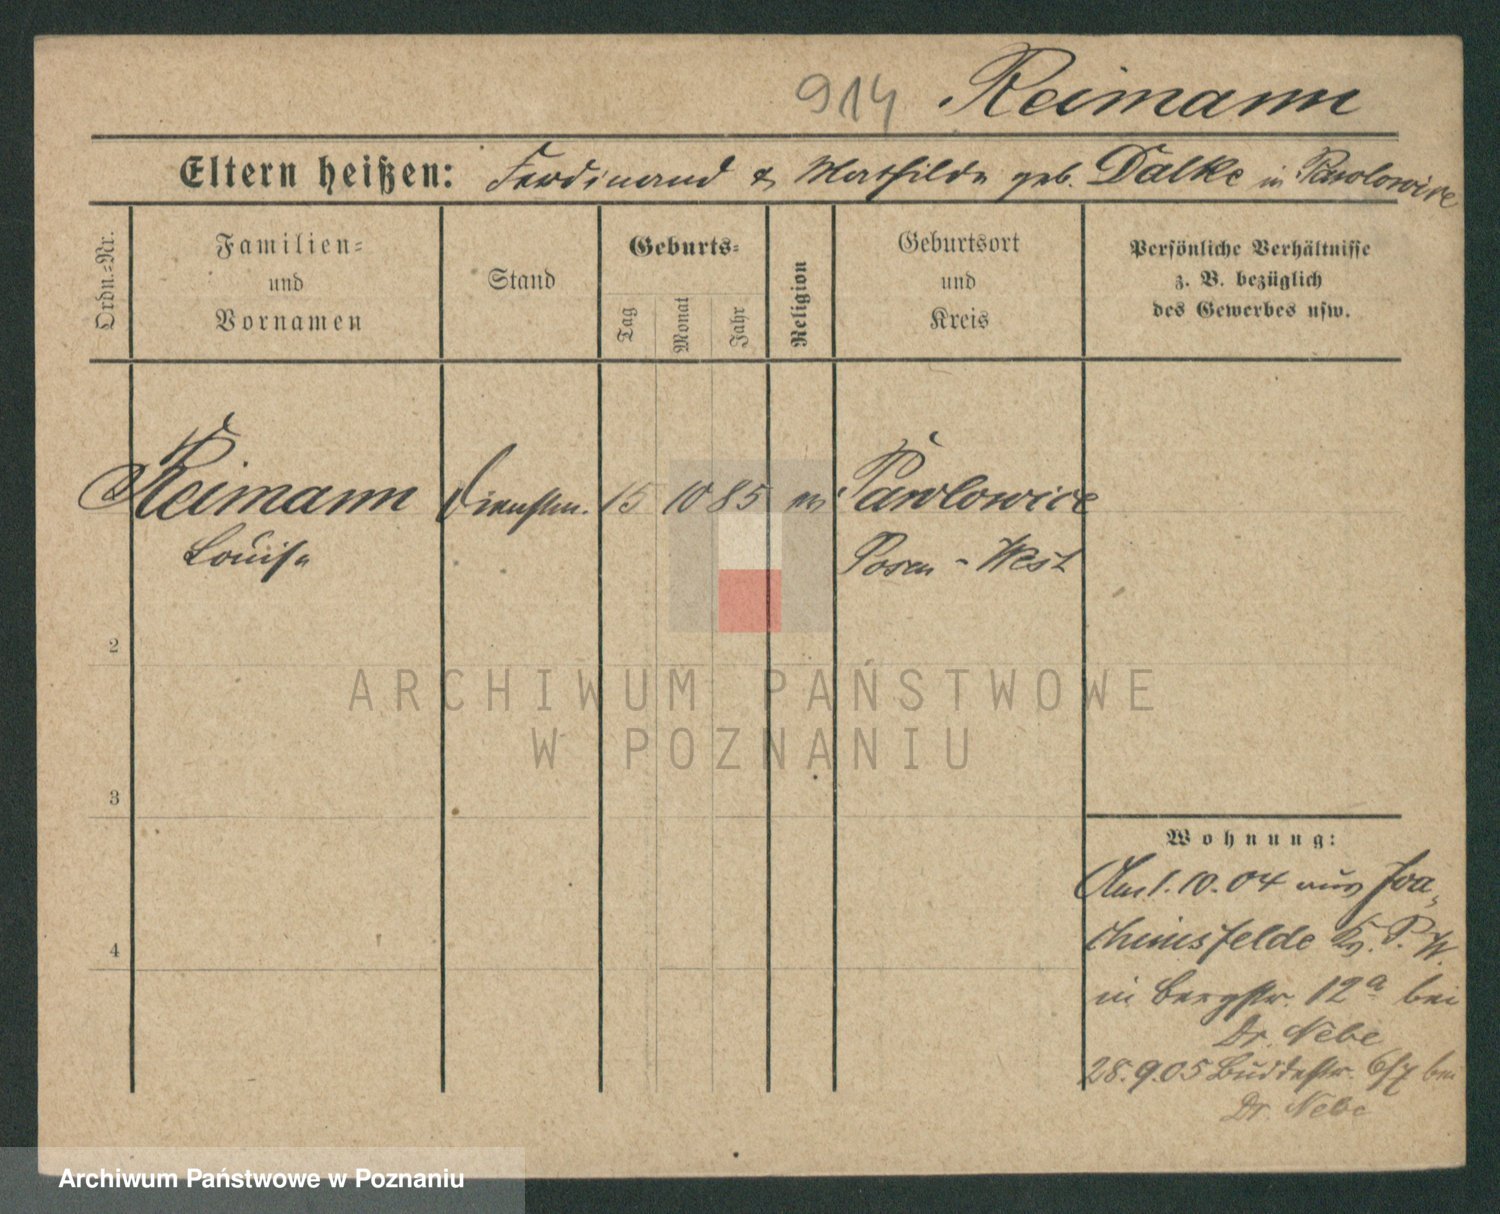 914 Reimann
Eltern heißen: Ferdinand & Mathilde geb. Dalke in Pawlowice
Ordn.-Nr.
Familien-
und
Vornamen
Stand
Geburts-
Tag
Monat
Jahr
Religion
Geburtsort
und
Kreis
Persönliche Verhältnisse
z. B. bezüglich
des Gewerbes usw.
Reimann Dienstm. 15 10 85 ev Pawlowice
Louise Posen - West
2
ARCHIWUM PAŃSTWOWE
W POZNANIU
3
Wohnung:
Am 1. 10. 04 aus Joa-
chimsfelde Kr. P. W.
4
in Bergstr. 12a bei
Dr. Nebe
28. 9. 05 Buddestr. 6/7 bei
Dr. Nebe
Archiwum Państwowe w Poznaniu